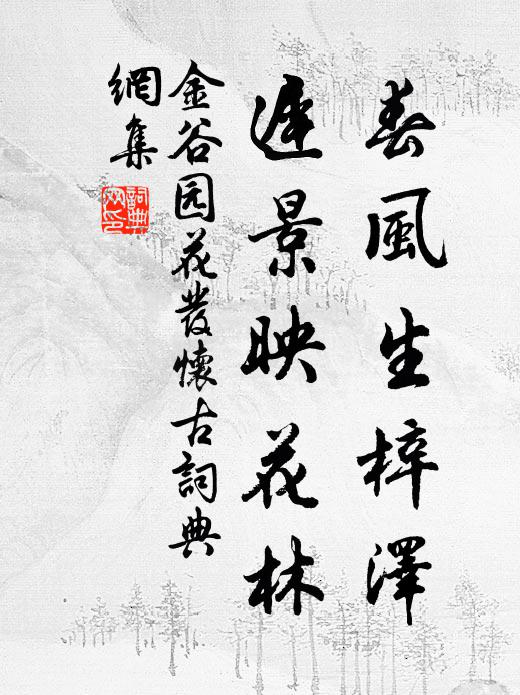 春風生梓澤
遲景映花林
金谷园花發懷古詞典
網集
詞典
网印